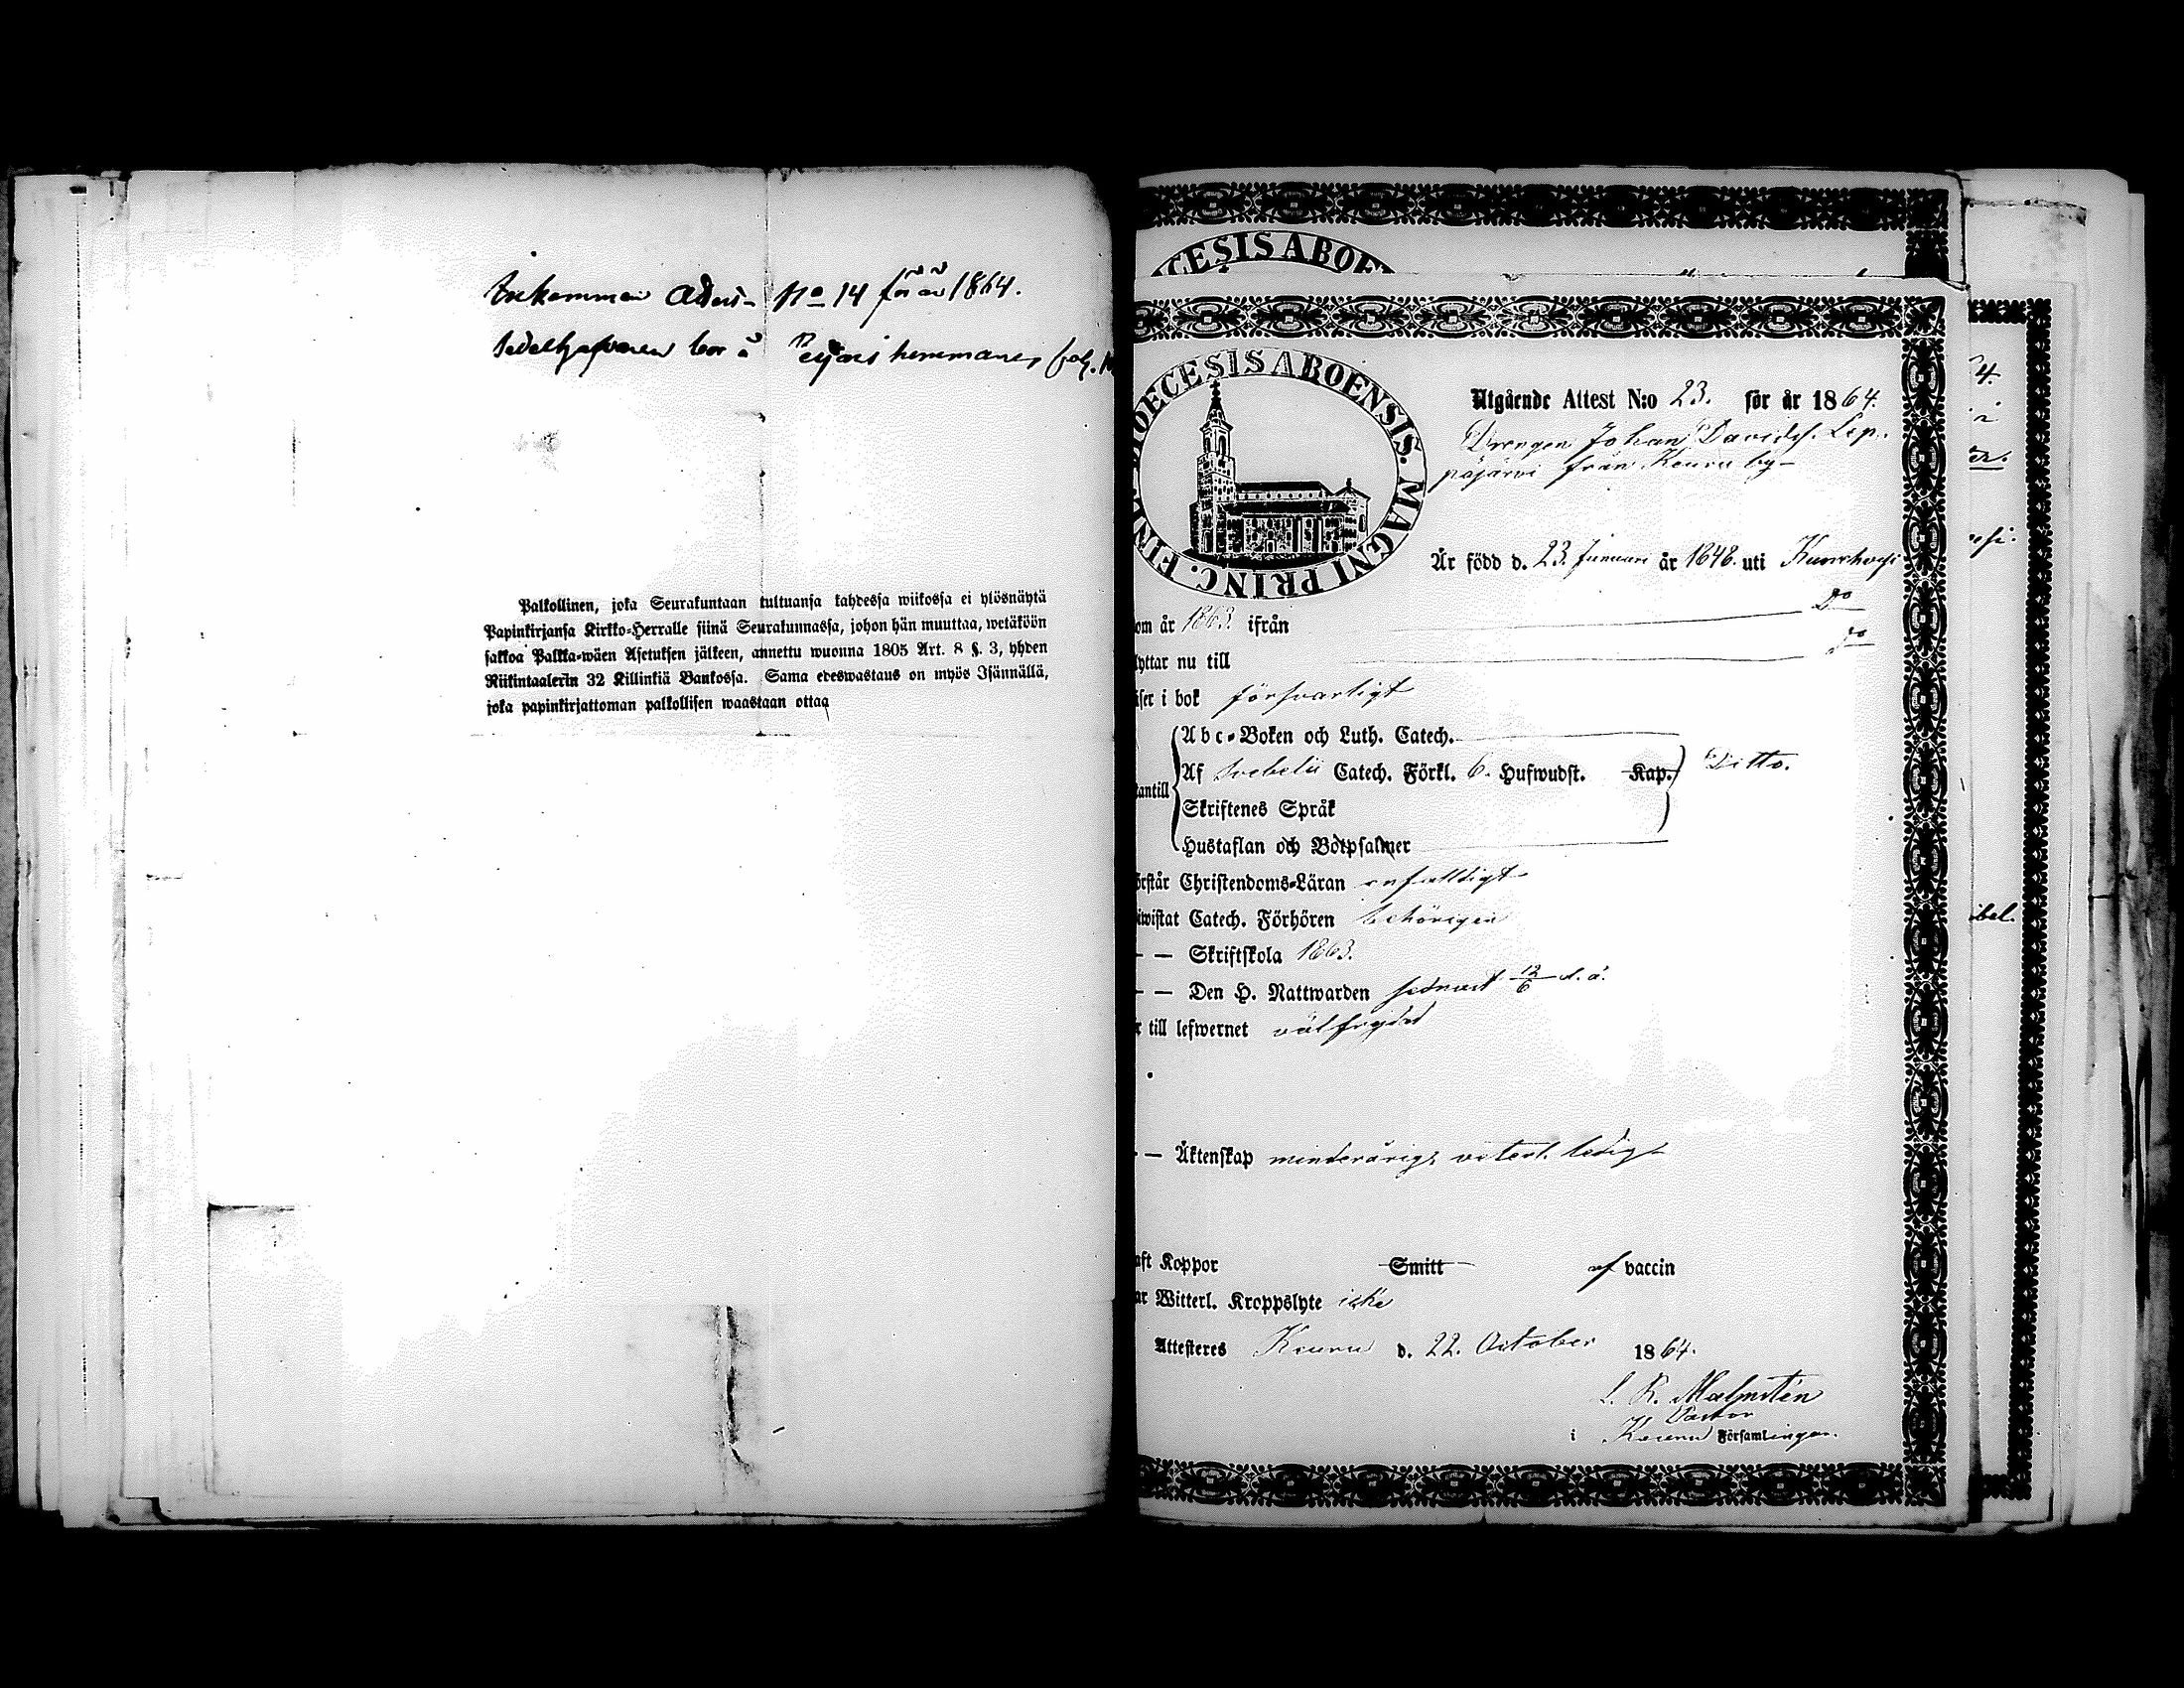 Inkommen Attest N:o 14 för år 1864.
Sedelhafvaren bor å hemmanet, pag.
Palkollinen, joka Seurakuntaan tultuansa kahdessa wiikossa ei ylösnäytä
Papinkirjansa Kirkko-Herralle siinä Seurakunnassa, johon hän muuttaa, wetäköön
sakkoa Palkka-wäen Asetuksen jälkeen, annettu wuonna 1805 Art. 8 §. 3, yhden
Riikintaalerin 32 Killinkiä Bankossa. Sama edeswastaus on myös Isännällä,
joka papinkirjattoman palkollisen waastaan ottaa
CESIS ABOE
DIOECESIS ABOENSIS. MAGNI PRINC. FINL.
Utgående Attest N:o 23. för år 1864.
Drengen Johan Davidss. Lep-
päjärvi från Keuru by
Är född d. 23. Januari år 1848. uti Kuorehvesi
om år 1863. ifrån Do
lyttar nu till Do
äser i bok försvarligt
Abc-Boken och Luth. Catech.
Af Svebelii Catech. Förkl. 6. Hufwudst. Kap. Ditto.
tantill
Skriftenes Språk
Hustaflan och Botpsalmer
örstår Christendoms-Läran enfaldigt
iwistat Catech. Förhören behörigen
— — Skriftskola 1863.
— — Den H. Nattwarden sednast 12/6 d. å.
r till lefwernet välfrejdad
— — Äktenskap minderårig, veterl. ledig
aft Koppor Smitt af vaccin
ar Witterl. Kroppslyte icke
Attesteres Keuru d. 22. October 1864.
L. R. Malmstén
Pastor
i Keuru Församlingar.
4.
ibel.